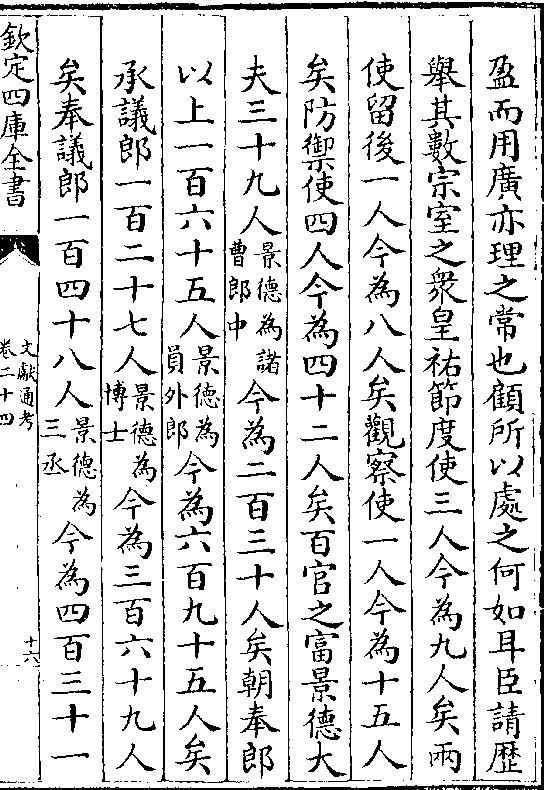 盈而用廣亦理之常也顧所以處之何如耳臣請歴
舉其數宗室之衆皇祐節度使三人今為九人矣兩
使留後一人今為八人矣觀察使一人今為十五人
矣防禦使四人今為四十二人矣百官之富景德大
夫三十九人景德為諸曹郎中今為二百三十人矣朝奉郎
以上一百六十五人景德為員外郎今為六百九十五人矣
承議郎一百二十七人景德為博士今為三百六十九人
矣奉議郎一百四十八人景德為三丞今為四百三十一
欽定四庫全書
文獻通考
卷二十四
十六